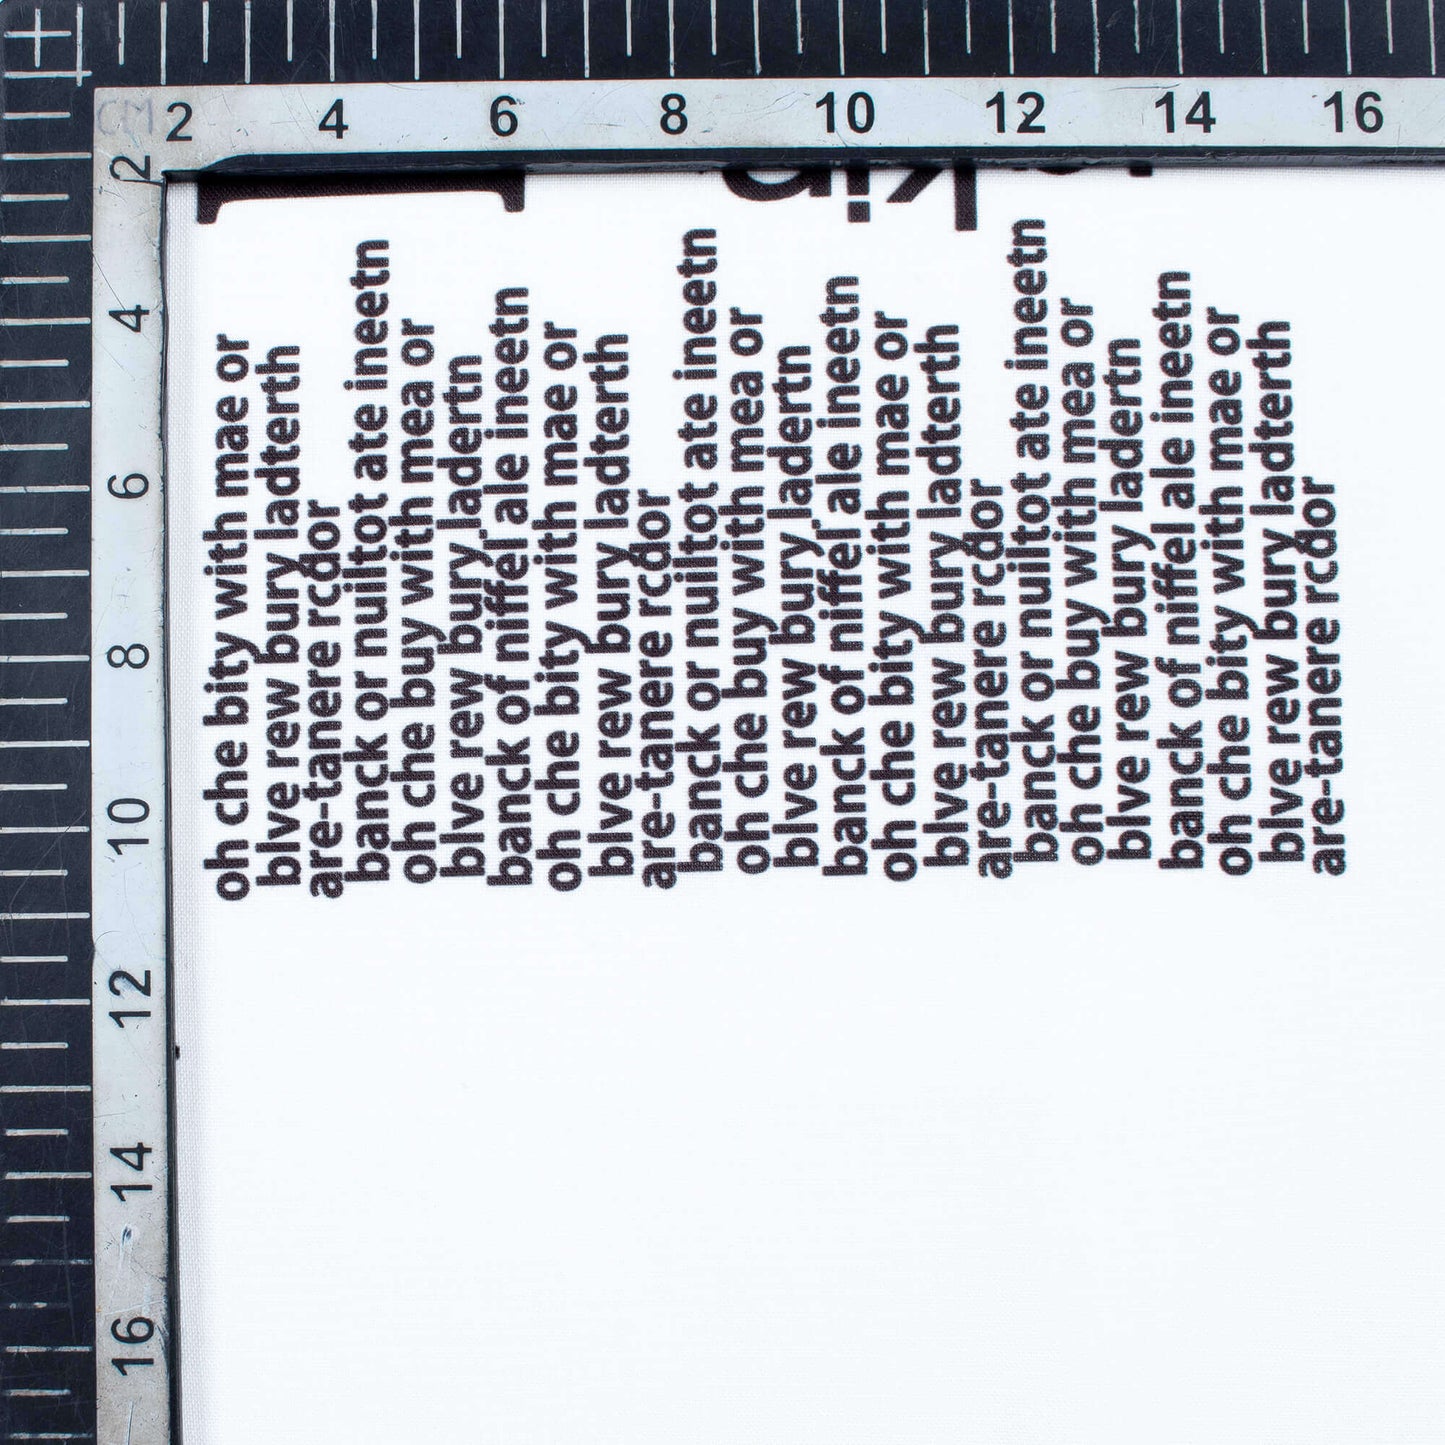 CM 2 4 6 8 10 12 14 16
2
4
6
8
10
12
14
16
oh che bity with mae or
blve rew bury ladterth
are-tanere rcdor
banck or nuiltot ate ineetn
oh che buy with mea or
blve rew bury ladertn
banck of niffel ale ineetn
oh che bity with mae or
blve rew bury ladterth
are-tanere rcdor
banck or nuiltot ate ineetn
oh che buy with mea or
blve rew bury ladertn
banck of niffel ale ineetn
oh che bity with mae or
blve rew bury ladterth
are-tanere rcdor
banck or nuiltot ate ineetn
oh che buy with mea or
blve rew bury ladertn
banck of niffel ale ineetn
oh che bity with mae or
blve rew bury ladterth
are-tanere rcdor